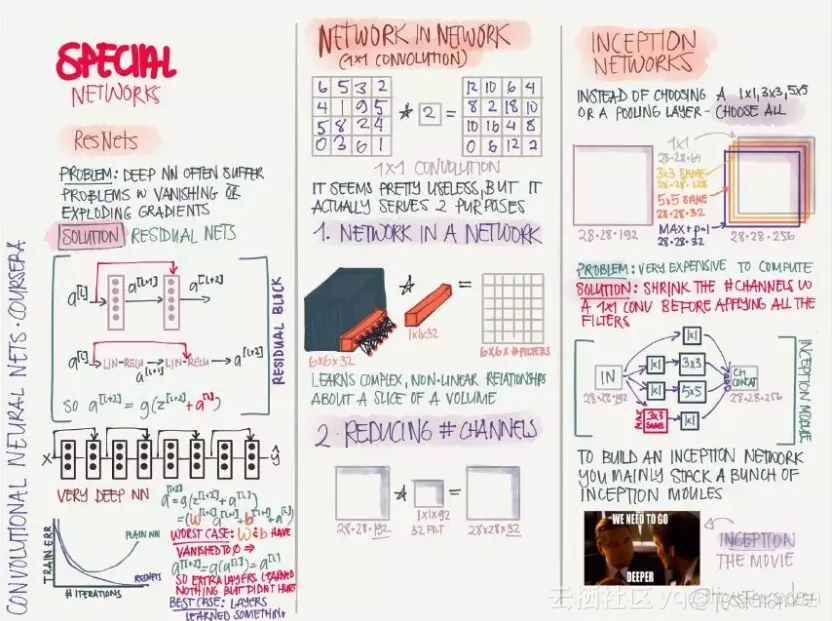 CONVOLUTIONAL NEURAL NETS · COURSERA
SPECIAL
NETWORKS
ResNets
PROBLEM: DEEP NN OFTEN SUFFER
PROBLEMS W VANISHING OR
EXPLODING GRADIENTS
SOLUTION RESIDUAL NETS
a[l] a[l+1] a[l+2]
a[l] LIN-RELU LIN-RELU a[l+2]
a[l+1]
SO a[l+2] = g(z[l+2] + a[l])
RESIDUAL BLOCK
X ŷ
VERY DEEP NN
a[l+2] = g(z[l+2] + a[l])
= (W[l+2] a[l+1] + b[l+2] + a[l])
WORST CASE: W & b HAVE
VANISHED TO 0 ⇒
a[l+2] = g(a[l]) = a[l]
SO EXTRA LAYERS LEARNED
NOTHING BUT DIDN'T HURT
BEST CASE: LAYERS
LEARNED SOMETHING
TRAIN ERR
PLAIN NN
RESNETS
# ITERATIONS
NETWORK IN NETWORK
(1x1 CONVOLUTION)
6 5 3 2
4 1 9 5
5 8 2 4
0 3 6 1
* 2 =
12 10 6 4
8 2 18 10
10 16 4 8
0 6 12 2
1x1 CONVOLUTION
IT SEEMS PRETTY USELESS, BUT IT
ACTUALLY SERVES 2 PURPOSES
1. NETWORK IN A NETWORK
* =
6x6x32 1x1x32 6x6x #FILTERS
LEARNS COMPLEX, NON-LINEAR RELATIONSHIPS
ABOUT A SLICE OF A VOLUME
2. REDUCING # CHANNELS
* =
28·28·192 1x1x192 28x28x32
32 FILT
INCEPTION
NETWORKS
INSTEAD OF CHOOSING A 1x1, 3x3, 5x5
OR A POOLING LAYER - CHOOSE ALL
1x1
28·28·64
3x3 SAME
28·28·128
5x5 SAME
28·28·32
MAX+p=1
28·28·32
28·28·192 28·28·256
PROBLEM: VERY EXPENSIVE TO COMPUTE
SOLUTION: SHRINK THE #CHANNELS W
A 1x1 CONV BEFORE APPLYING ALL THE
FILTERS
1x1
IN 1x1 3x3 CH CONCAT
1x1 5x5
28·28·192 28·28·256
MAX 3x3 SAME 1x1
INCEPTION MODULE
TO BUILD AN INCEPTION NETWORK
YOU MAINLY STACK A BUNCH OF
INCEPTION MOULES
WE NEED TO GO
DEEPER
INCEPTION
THE MOVIE
云栖社区